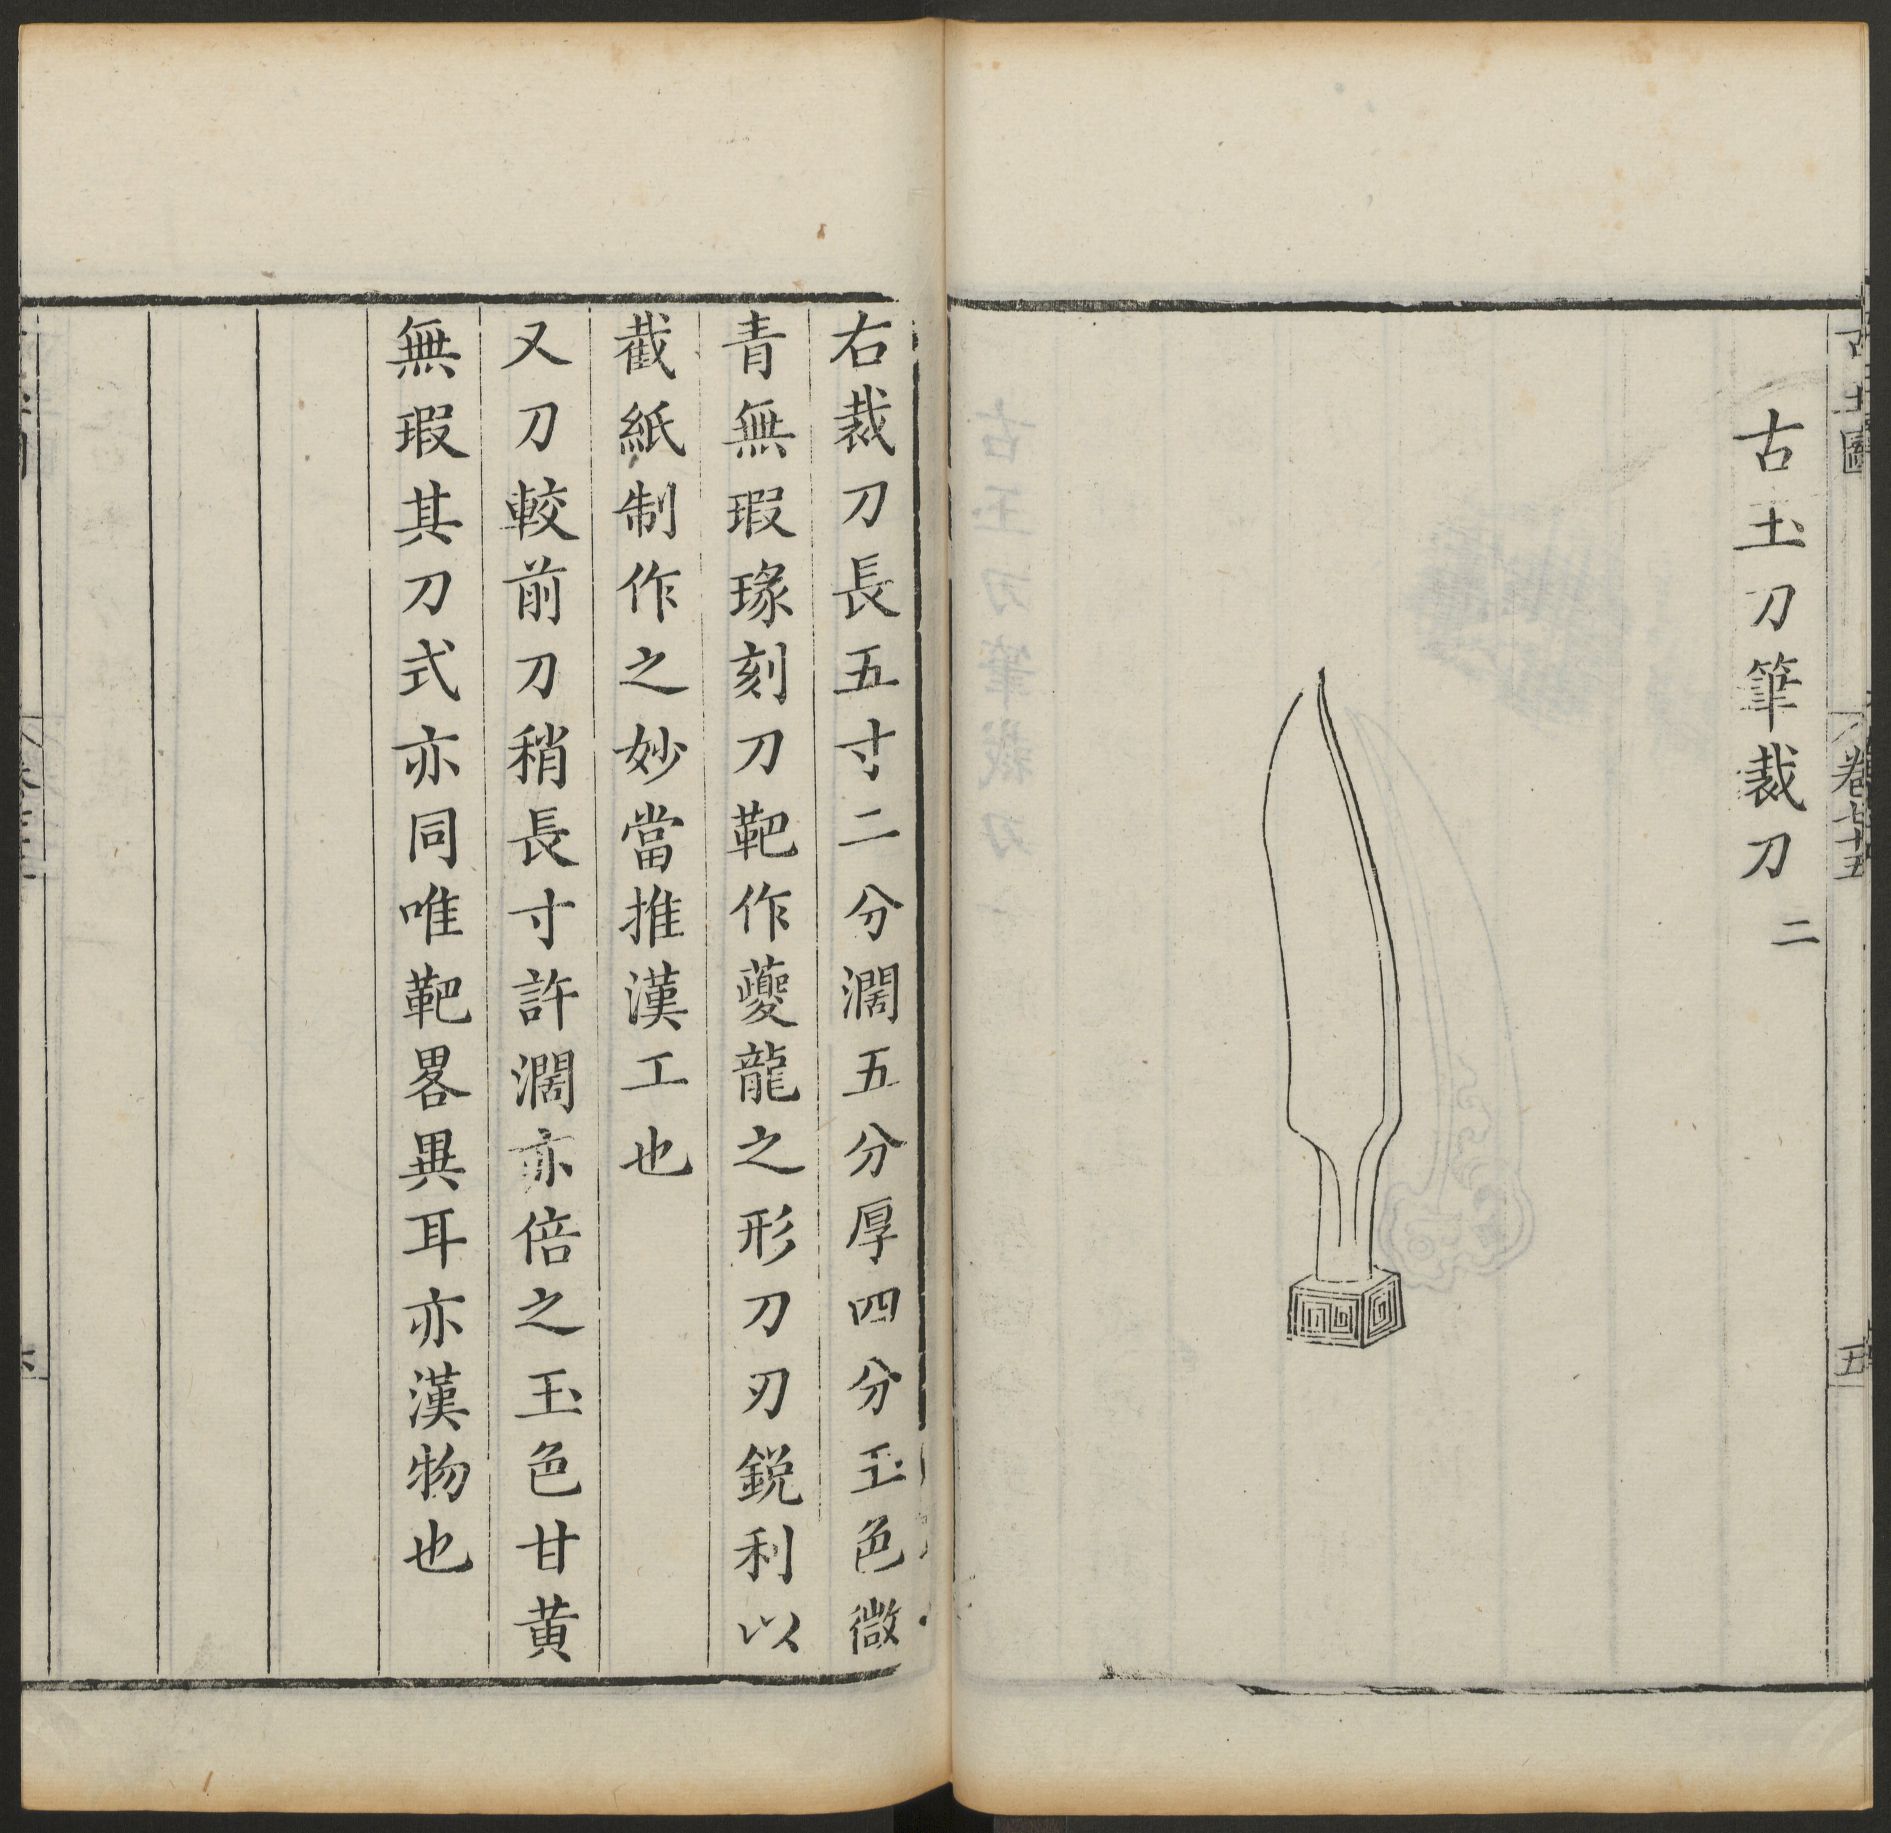 古玉圖
卷七十五
五
古玉刀筆裁刀 二
右裁刀長五寸二分濶五分厚四分玉色微
青無瑕瑑刻刀靶作夔龍之形刀刃鋭利以
截紙制作之妙當推漢工也
又刀較前刀稍長寸許濶亦倍之玉色甘黃
無瑕其刀式亦同唯靶畧異耳亦漢物也